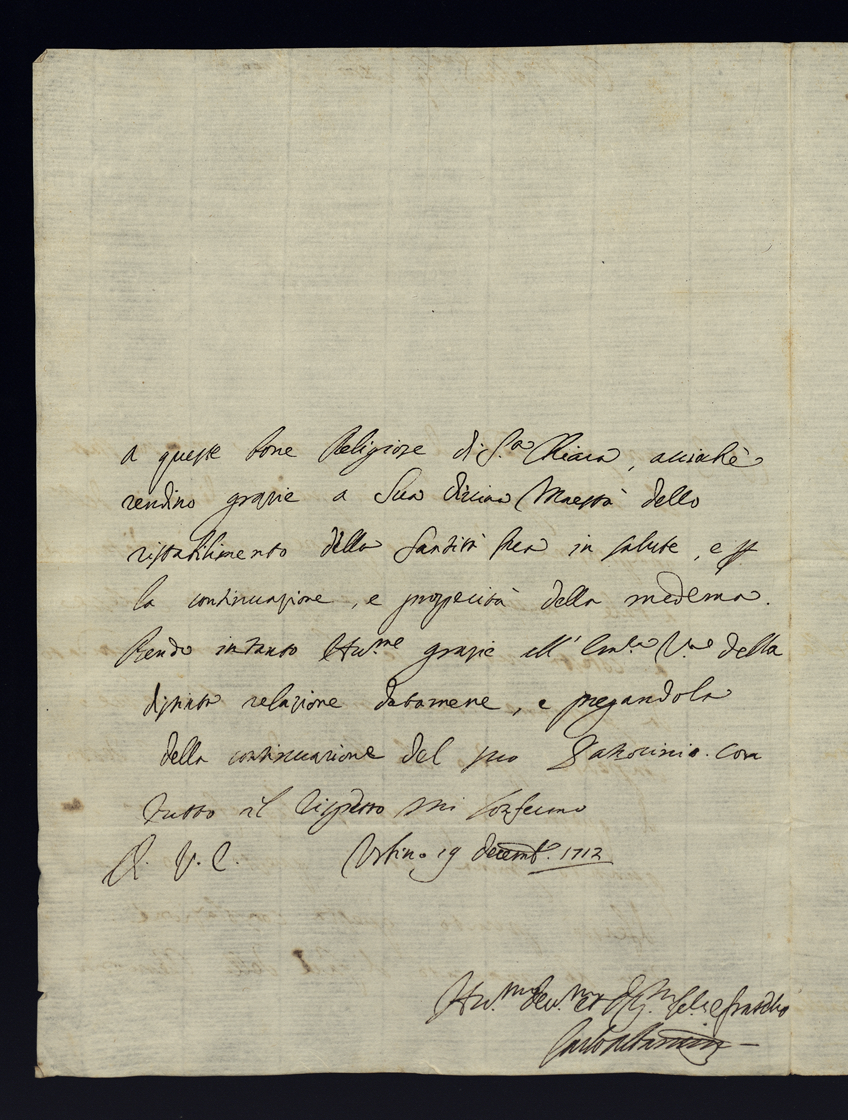 a queste bone Religiose di S.ta Chiara, acciochè
rendino grazie a Sua divina Maestà dello
ristabilimento della Santità Sua in salute, e p
la continuazione, e prosperità della medema.
Rendo intanto Hu.me grazie all' Em.za V.ra della
distinta relazione datamene, e pregandola
della continuazione del suo Patrocinio. Con
tutto il rispetto mi confermo
D. V. E. Urbino 19 decemb.e 1712
Hu.mo deu.mo et